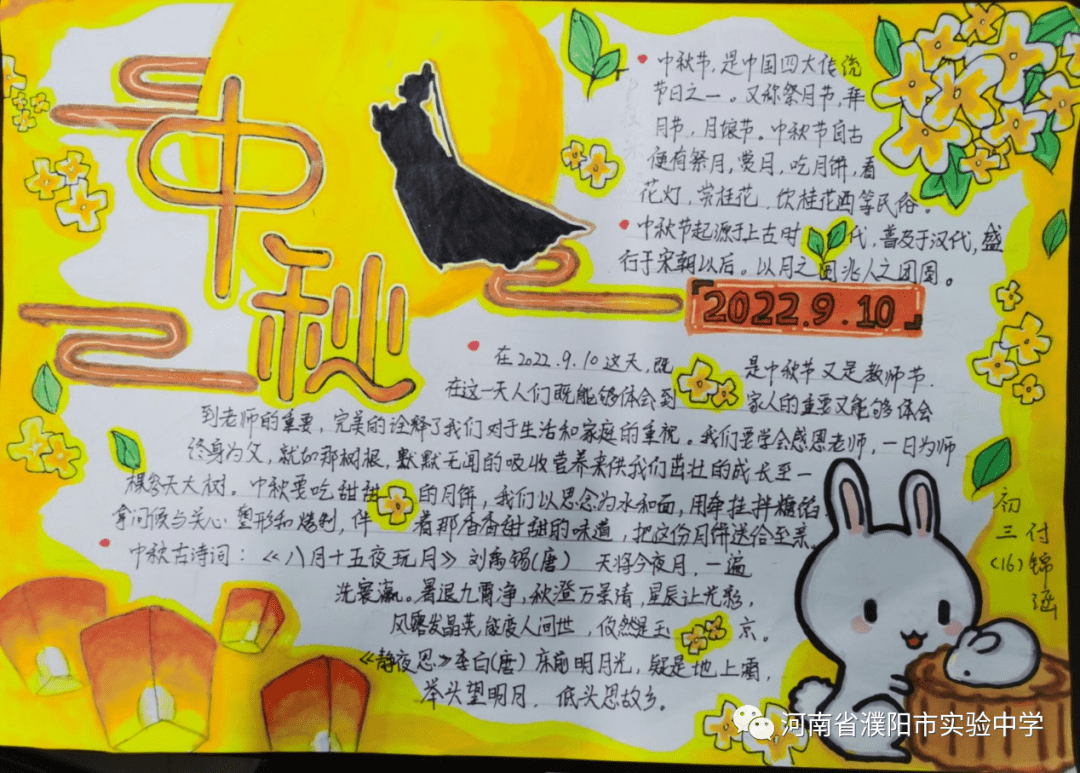 中秋
中秋节,是中国四大传统
节日之一。又称祭月节,拜
月节,月娘节。中秋节自古
便有祭月,赏月,吃月饼,看
花灯,赏桂花,饮桂花酒等民俗。
中秋节起源于上古时代,普及于汉代,盛
行于宋朝以后。以月之圆兆人之团圆。
2022.9.10
在2022.9.10这天,既是中秋节又是教师节.
在这一天人们既能够体会到家人的重要又能够体会
到老师的重要,完美的诠释了我们对于生活和家庭的重视。我们要学会感恩老师,一日为师
终身为父,就如那树根,默默无闻的吸收营养来供我们茁壮的成长至一
棵参天大树。中秋要吃甜甜的月饼,我们以思念为水和面,用牵挂拌糖馅
拿问候与关心塑形和烤制,伴着那香香甜甜的味道,把这份月饼送给至亲。
中秋古诗词:《八月十五夜玩月》刘禹锡(唐) 天将今夜月,一遍
洗寰瀛。暑退九霄净,秋澄万景清,星辰让光彩,
风露发晶英,能变人间世,攸然是玉京。
《静夜思》李白(唐)床前明月光,疑是地上霜,
举头望明月,低头思故乡。
初三(16)
付锦
河南省濮阳市实验中学